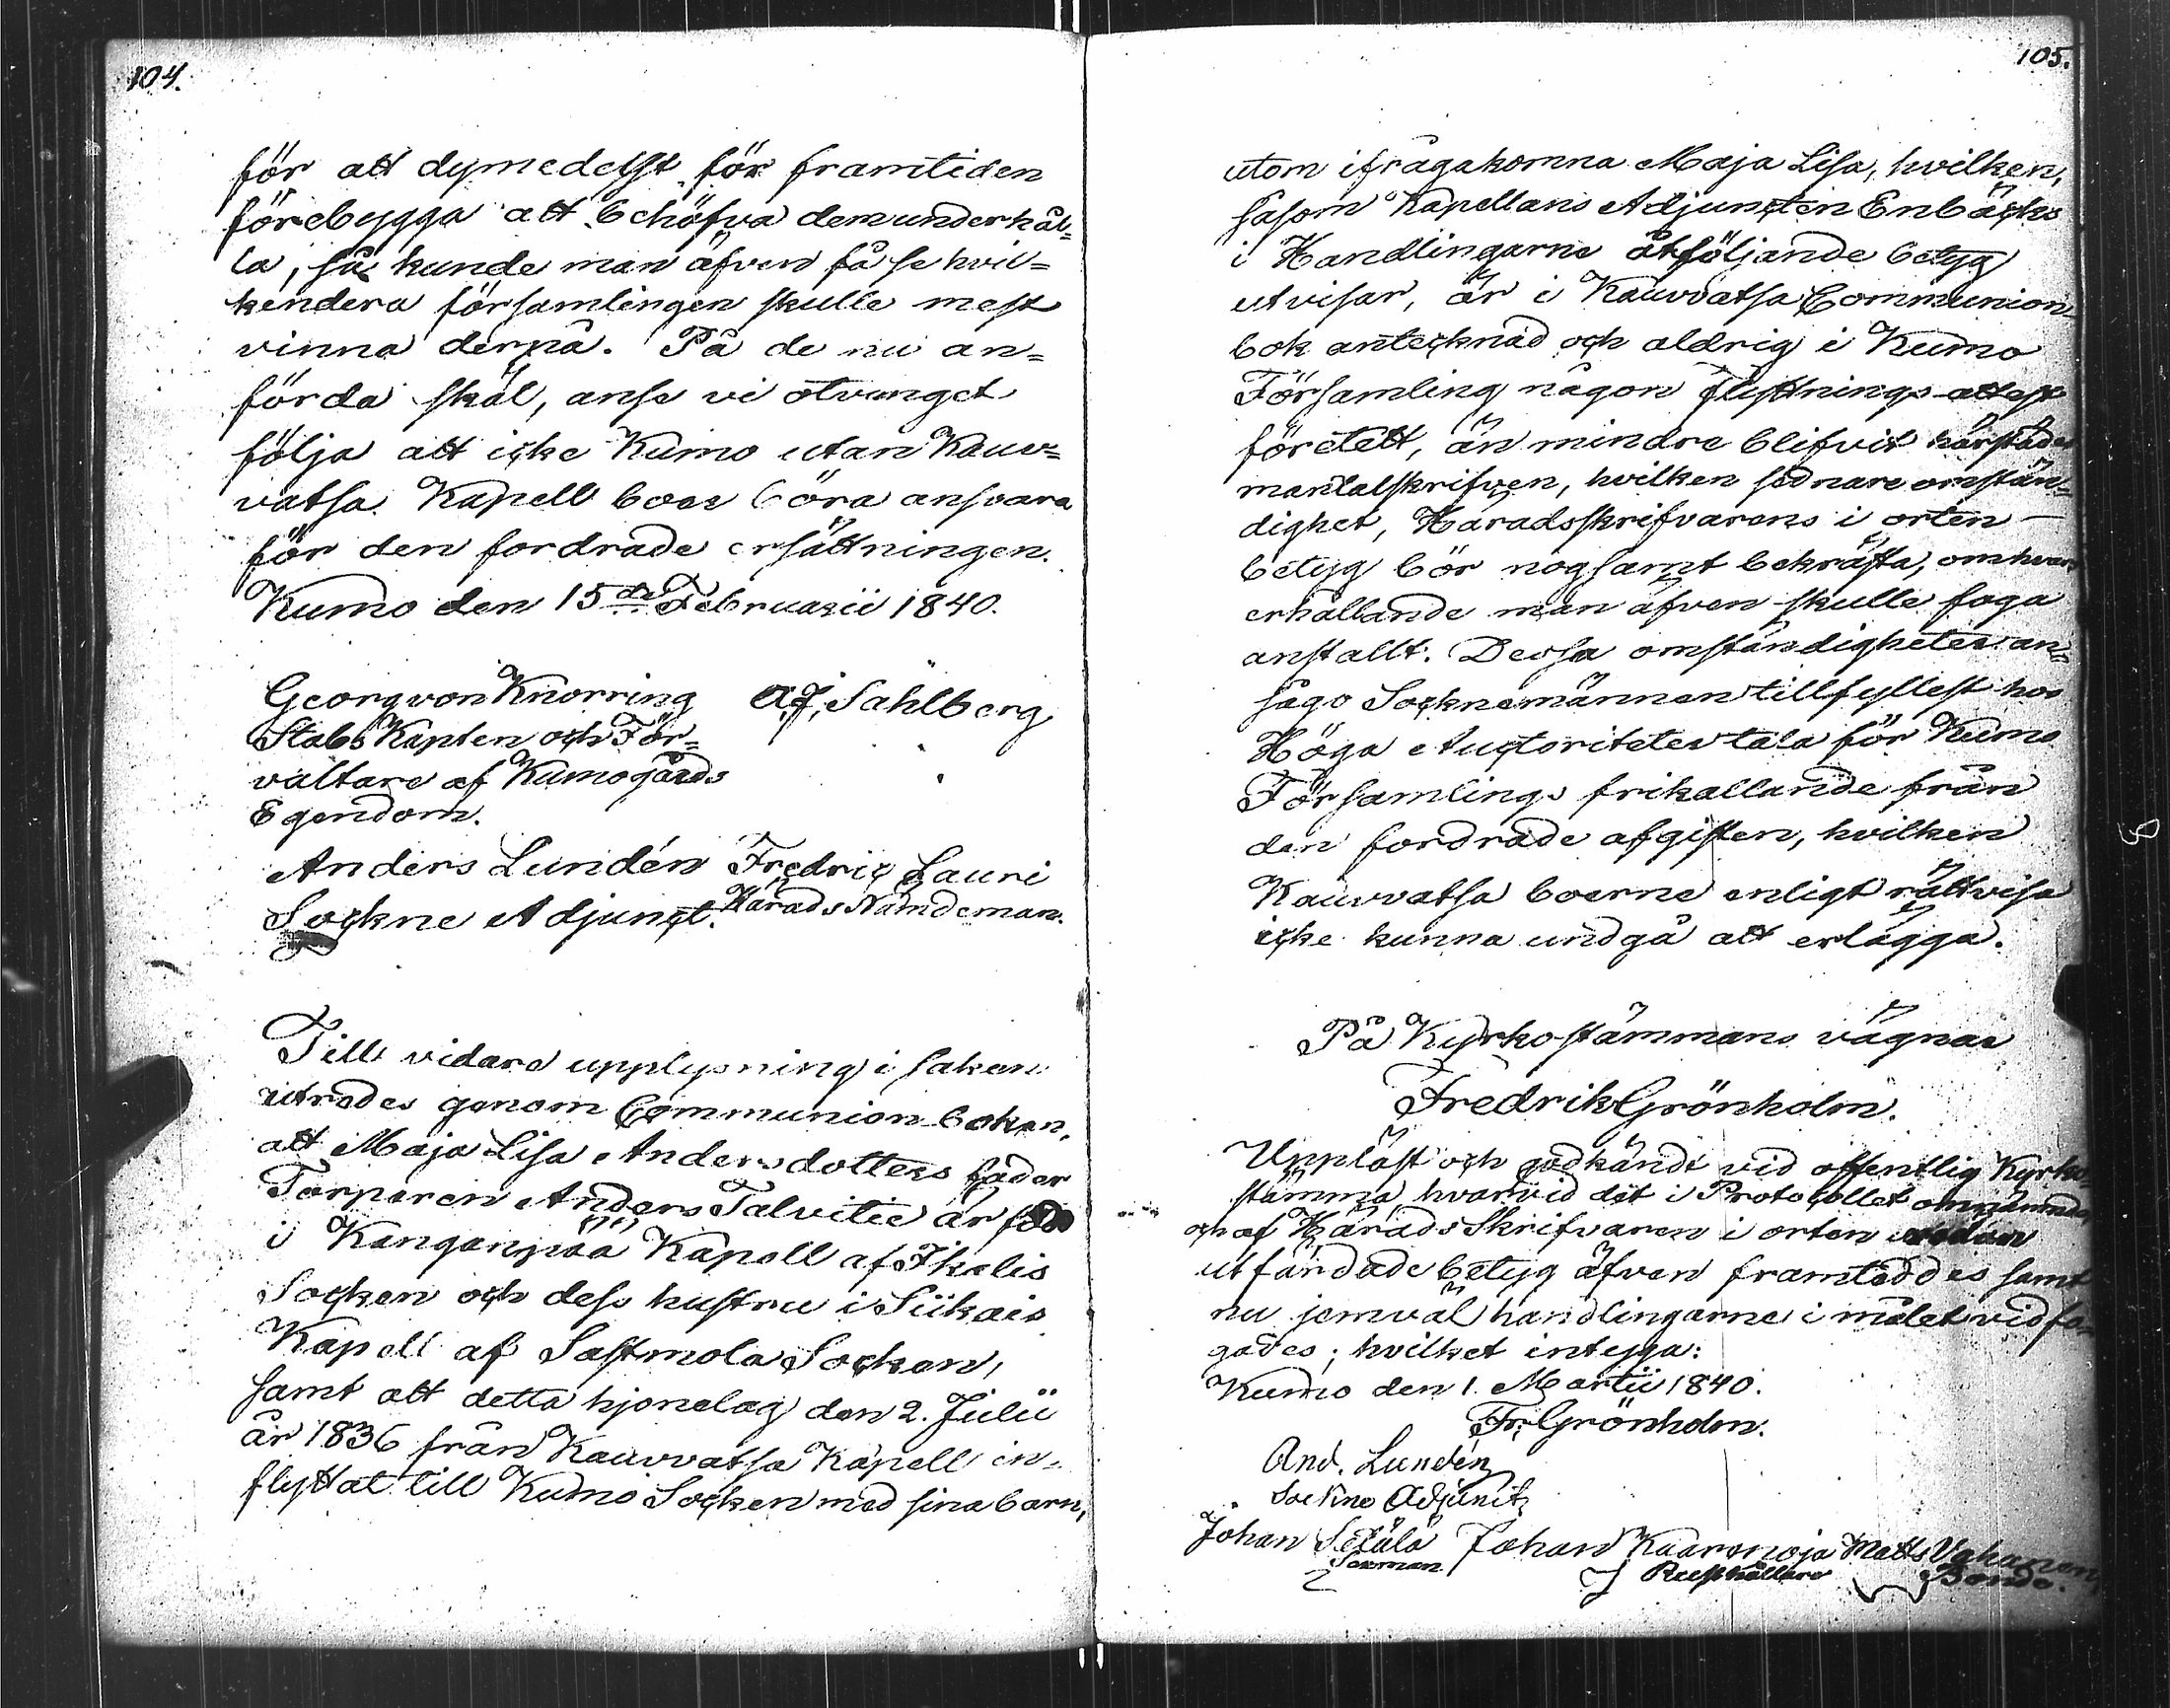 104.
för att dymedelst för framtiden
förebygga att behöfva dem underhål=
la, så kunde man äfven få se hvil=
kendera församlingen skulle mest
vinna derpå. På de nu an=
förda skäl, anse vi otvunget
följa att icke Kumo utan Kauv=
vatsa Kapell boer böra ansvara
för den fordrade ersättningen.
Kumo den 15de Februarii 1840.
Georg von Knorring A. J. Sahlberg
Stabs Kapten och För=
valtare af Kumogårds
Egendom.
Anders Lundén Fredric Lauri
Sockne Adjunct. Härads Nämdeman.
Till vidare upplysning i saken
utredes genom Communion boken,
att Maja Lisa Andersdotters fader
Torparen Anders Talvitie är född
i Kanganpää Kapell af Ikalis
Socken och dess hustru i Siikais
Kapell af Sastmola Socken,
samt att detta hjonelag den 2. Julii
år 1836 från Kauvvatsa Kapell in=
flyttat till Kumo Socken med sina barn,
105.
utom ifrågakomna Maja Lisa, hvilken,
såsom Kapellans Adjuncten Enbäcks
i Handlingarne åtföljande betyg
utvisar, är i Kauvvatsa Communion
bok antecknad och aldrig i Kumo
Församling någon flyttnings-attest
företett, än mindre blifvit härstädes
mantalskrifven, hvilken sednare omstän=
dighet, Häradsskrifvarens i orten —
betyg bör nogsamt bekräfta, om hvars
erhållande man äfven skulle foga
anstallt. Dessa omständigheter an=
sågo Socknemännen tillfyllest hos
Höga Auctoriteter tala för Kumo
Församlings frikallande från
den fordrade afgiften, hvilken
Kauvvatsa boerne enligt rättvisa
icke kunna undgå att erlägga.
På Kyrkostämmans vägnar
Fredrik Grönholm.
Uppläst och godkändt vid offentlig Kyrko=
stämma, hvarvid det i Protocollet omnämnda
och af Härads Skrifvaren i orten
utfärdade betyg äfven framteddes samt
nu jemväl handlingarne i målet vidfo=
gades; hvilket intyga:
Kumo den 1. Martii 1840.
Fr. Grönholm.
And. Lundén
Sockne Adjunct
Johan Setälä Johan Kaaronoja Matts
Sexman Rusthållare Bonde.